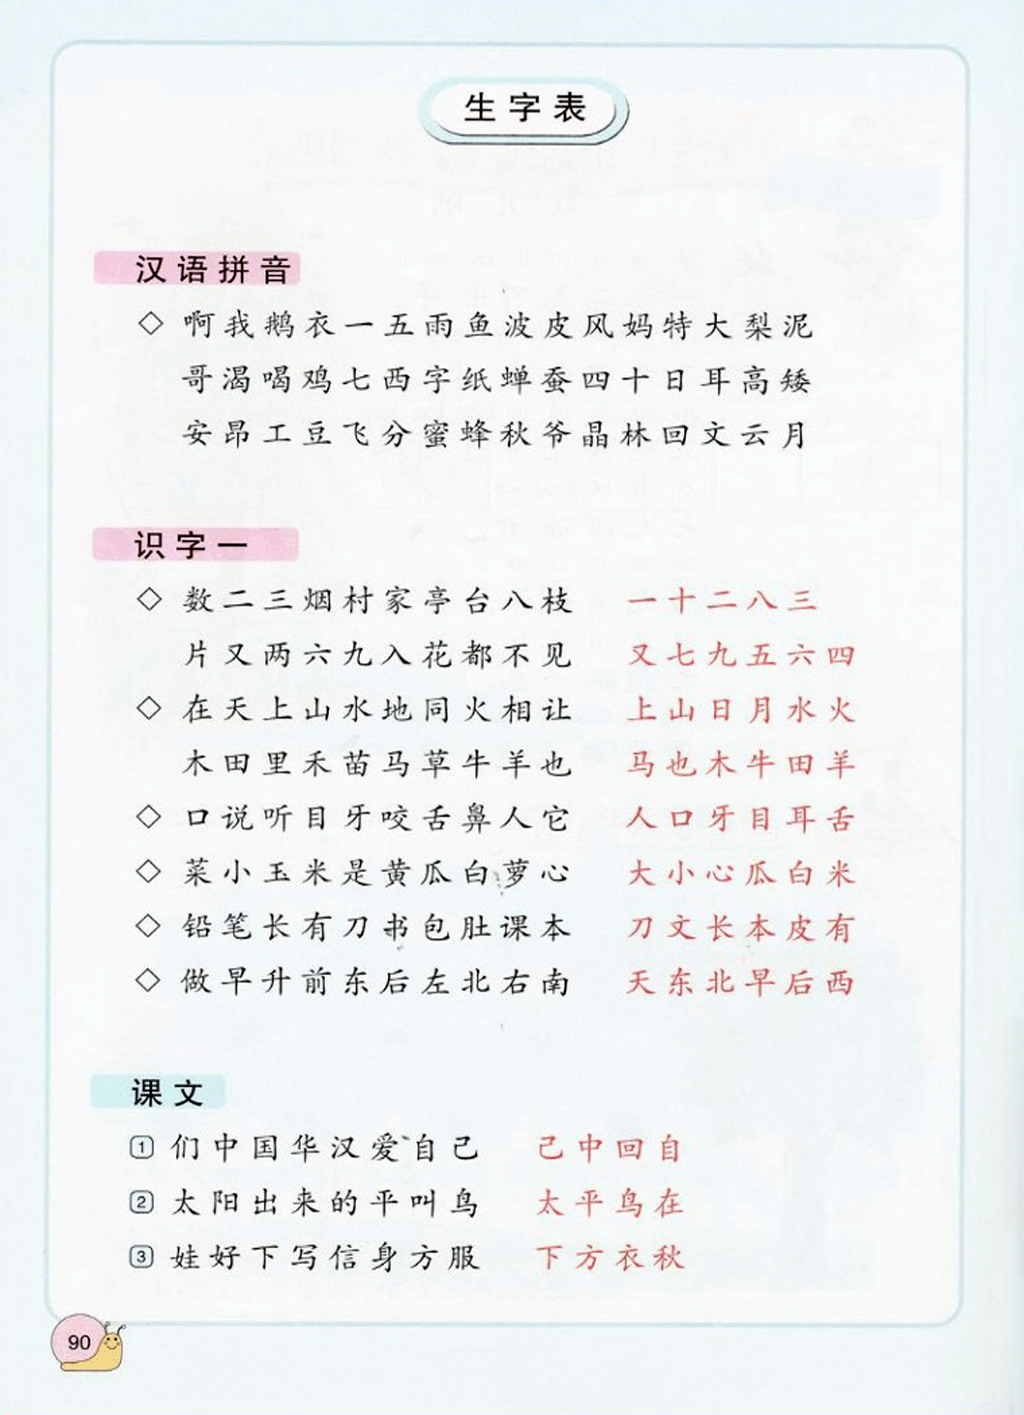 生字表
汉语拼音
◇ 啊我鹅衣一五雨鱼波皮风妈特大梨泥
哥渴喝鸡七西字纸蝉蚕四十日耳高矮
安昂工豆飞分蜜蜂秋爷晶林回文云月
识字一
◇ 数二三烟村家亭台八枝 一十二八三
片又两六九入花都不见 又七九五六四
◇ 在天上山水地同火相让 上山日月水火
木田里禾苗马草牛羊也 马也木牛田羊
◇ 口说听目牙咬舌鼻人它 人口牙目耳舌
◇ 菜小玉米是黄瓜白萝心 大小心瓜白米
◇ 铅笔长有刀书包肚课本 刀文长本皮有
◇ 做早升前东后左北右南 天东北早后西
课文
1 们中国华汉爱自己 己中回自
2 太阳出来的平叫鸟 太平鸟在
3 娃好下写信身方服 下方衣秋
90